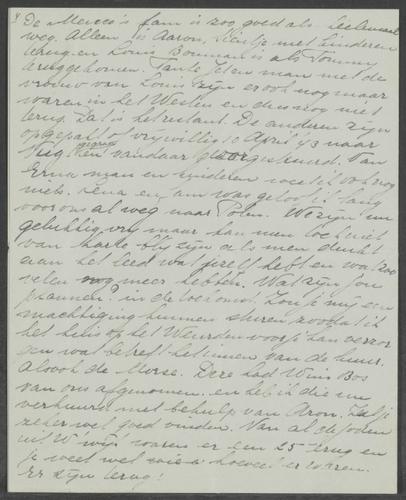 De Meuco's fam is zoo goed als heelemaal
weg. Alleen is Aaron, Sientje met kinderen
terug en Louis Bouman is als Tommy
teruggekomen. Tante Jet en man met de
vrouw van Louis zijn er ook nog maar
waren in het Westen en dus nog niet
terug. Dat is het restant. De anderen zijn
opgepakt of vrijwillig 10 April 43 naar
Vugt en vandaar doorgestuurd. Van
Erna man en kinderen weet ik ook nog
niets. Lena en fam was geloof ik lang
voor ons al weg naar Polen. We zijn nu
gelukkig vrij maar kan men toch niet
van harte blij zijn als men denkt
aan het leed wat jezelf hebt en wat zoo
velen nog meer hebben. Wat zijn jou
plannen in de toekomst. Zou je mij een
machtiging kunnen sturen zoodat ik
het huis op het Weurden voor je kan verzor
gen wat betreft het innen van de huur.
Alook de Morse. Deze had Wim Bos
van ons afgenomen en heb ik die nu
verhuurd met behulp van Aron. Zal je
zeker wel goed vinden. Van al de Joden
uit W'wijk waren er een 25 terug en
je weet wel hoeveel er waren.
Er zijn terug!